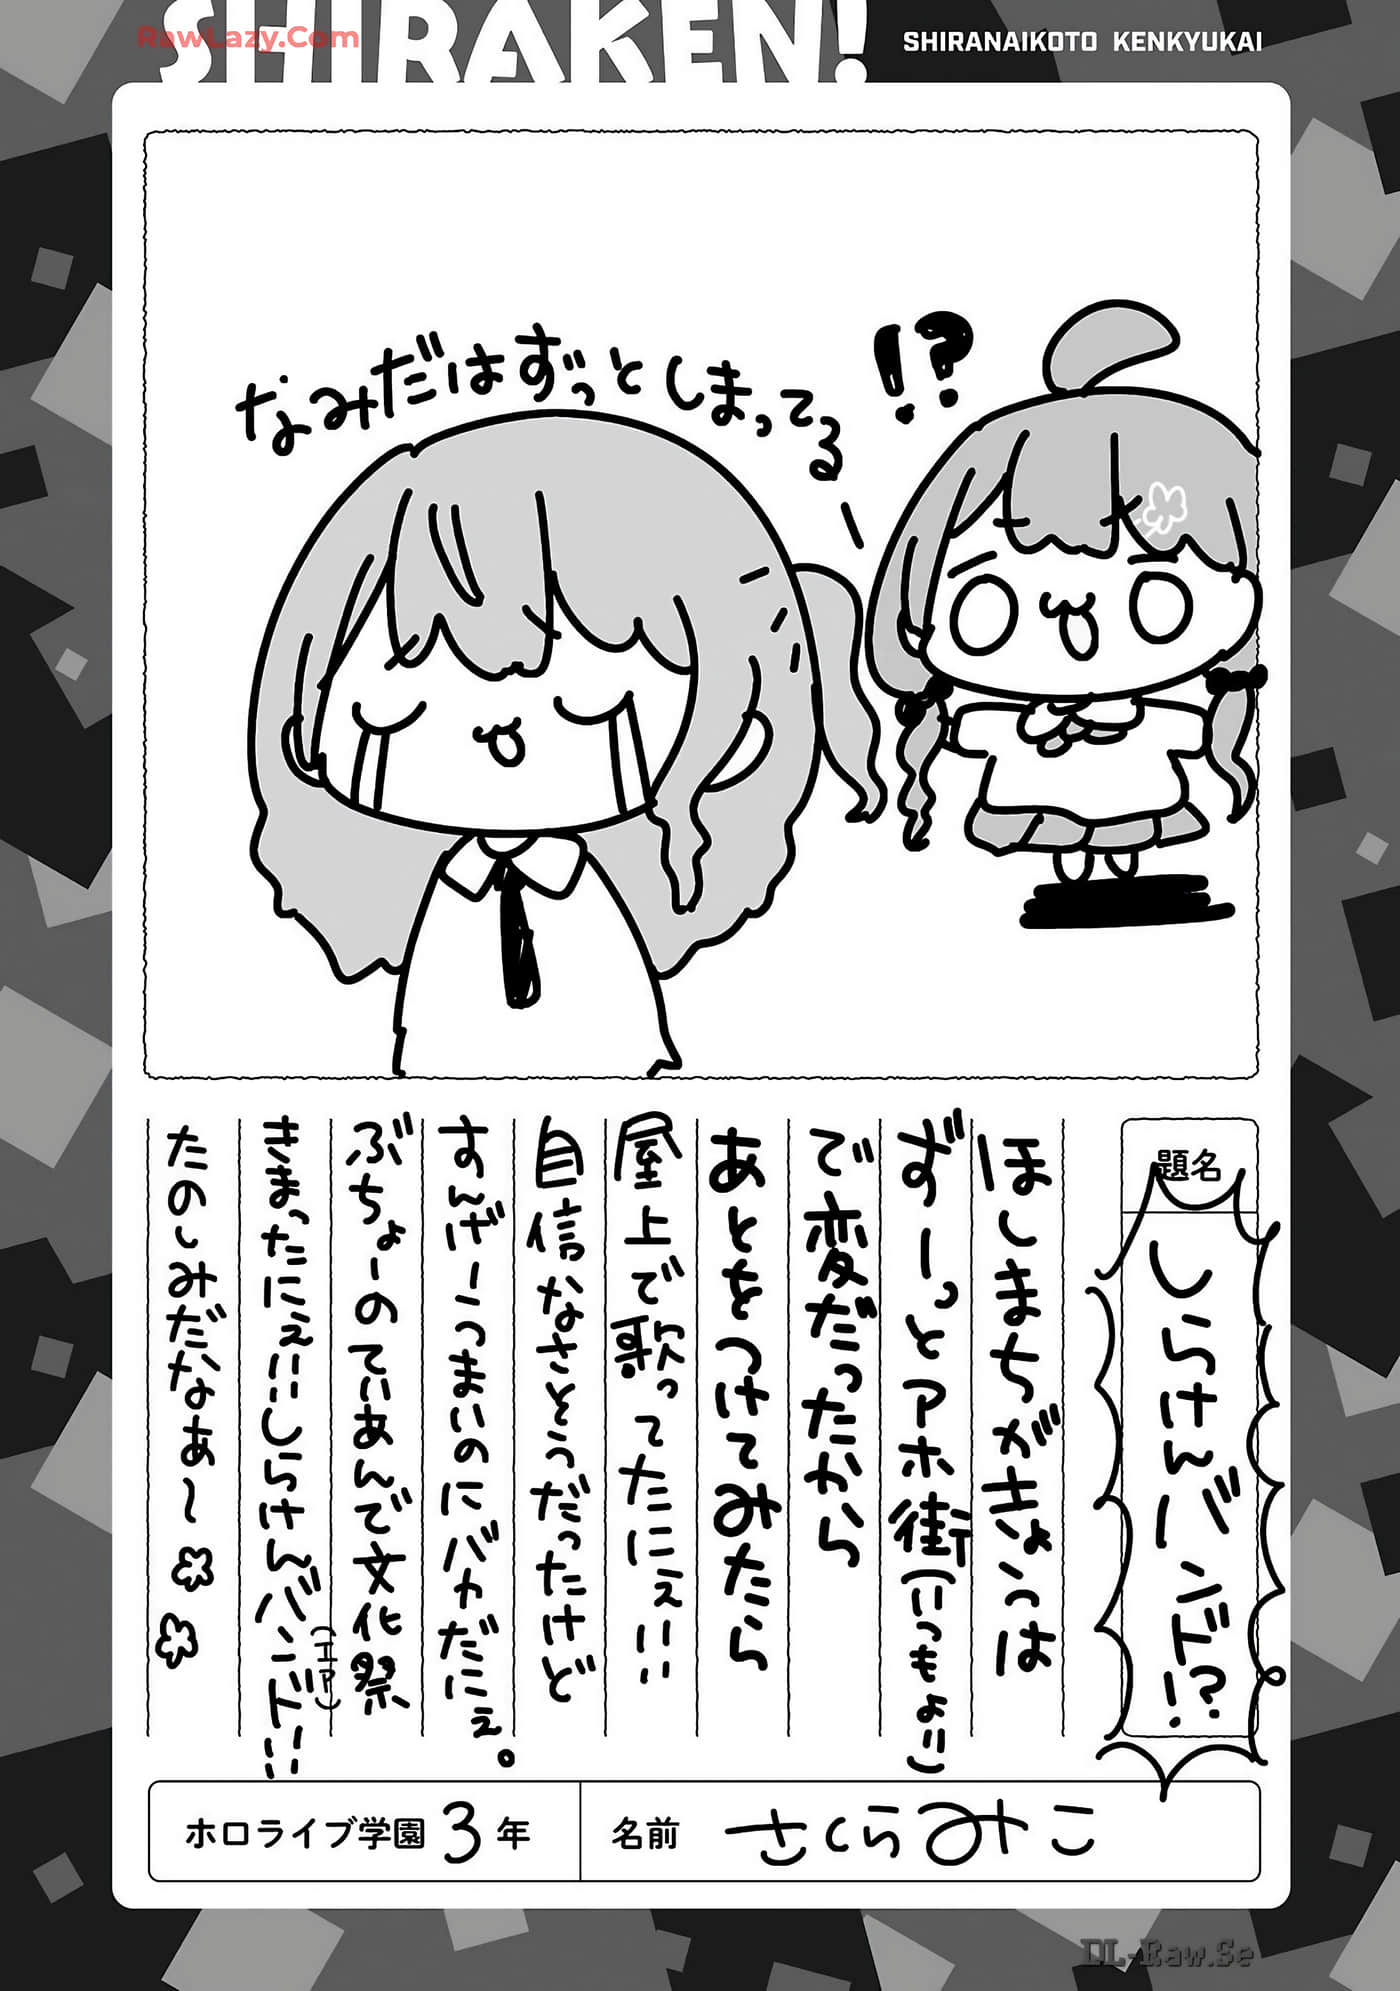 SHIRAKEN!
RawLazy.Com
SHIRANAIKOTO KENKYUKAI
なみだはずっとしまってる
!?
題名
しらけんバンド!?
ほしまちがきょうは
ずーっとアホ街(いつもよ!!)
で変だったから
あとをつけてみたら
屋上で歌ってたにぇ!!
自信なさそうだったけど
すんげーうまいのにバカだにぇ。
ぶちょーのていあんで文化祭
きまったにぇ!!しらけん(エア)バンド!!
たのしみだなぁ～
ホロライブ学園 3 年
名前 さくらみこ
DL-Raw.Se